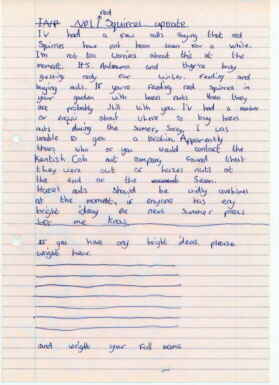 red
NO1 Squirrel update
I'V had a few nuts saying that red
Squirres have not been seen for a while.
I'm not too worried about this at the
moment. It'S Autumn and theyre busy
getting redy for winter, feeding and
burying nuts. If you're feeding red Squirrels in
your garden with hazel nuts then they
are probably still with you I'V had a number
of about where to buy hazel
nuts during the Summer, Sorry I was
unable to give you a Apparently
those who of you would contact the
Kentish Cob nut company found that
they were out of hazel nuts at
the end of the Season.
Hazel nuts Should be widly available
at the moment, if anyone has any
bright ideas for next Summer please
let me know.
If you have any bright ideas please
wright hear.
and wright your full name